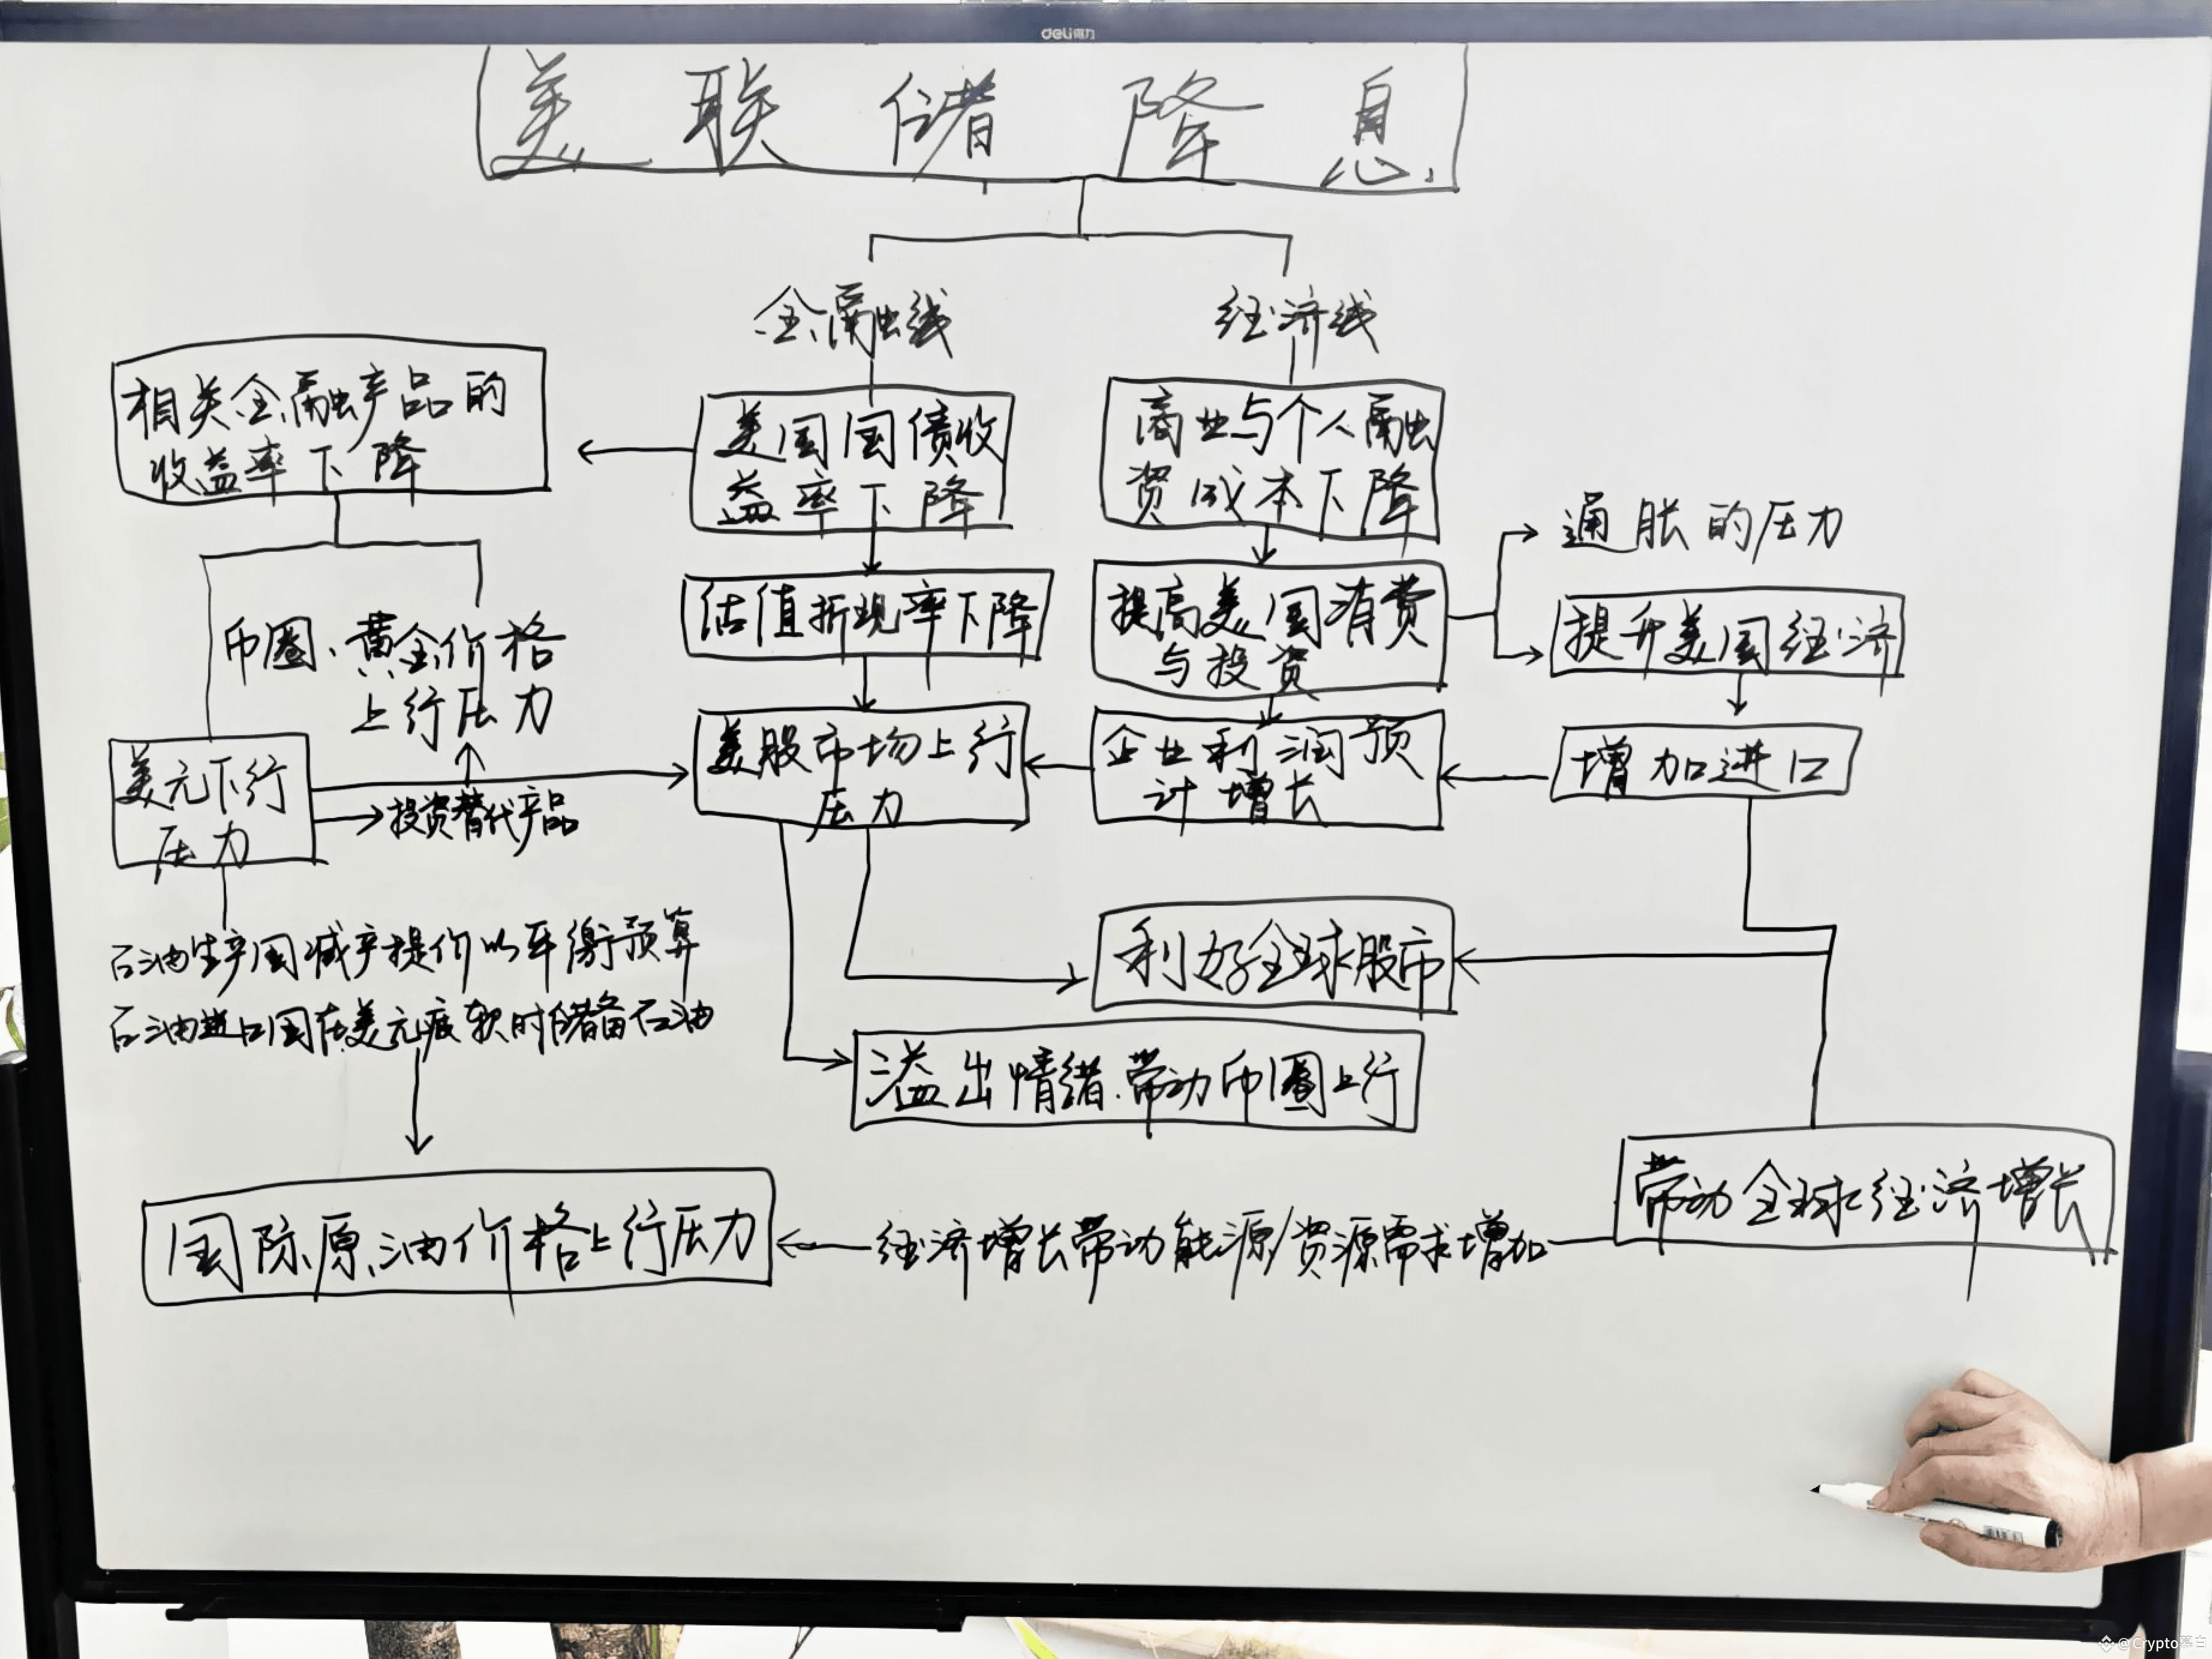 deli得力
美联储降息
金融线
经济线
相关金融产品的
收益率下降
美国国债收
益率下降
商业与个人融
资成本下降
通胀的压力
估值折现率下降
提高美国消费
与投资
提升美国经济
币圈、黄金价格
上行压力
美股市场上行
压力
企业利润预
计增长
增加进口
美元下行
压力
投资替代产品
石油生产国减产提价以平衡预算
石油进口国在美元疲软时储备石油
利好全球股市
溢出情绪.带动币圈上行
国际原油价格上行压力
经济增长带动能源/资源需求增加
带动全球经济增长
@Crypto慕白